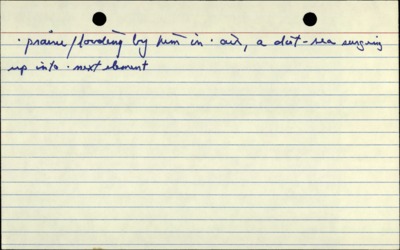 · prairie/flooding by him in · air, a dust-sea surging
up into · next element